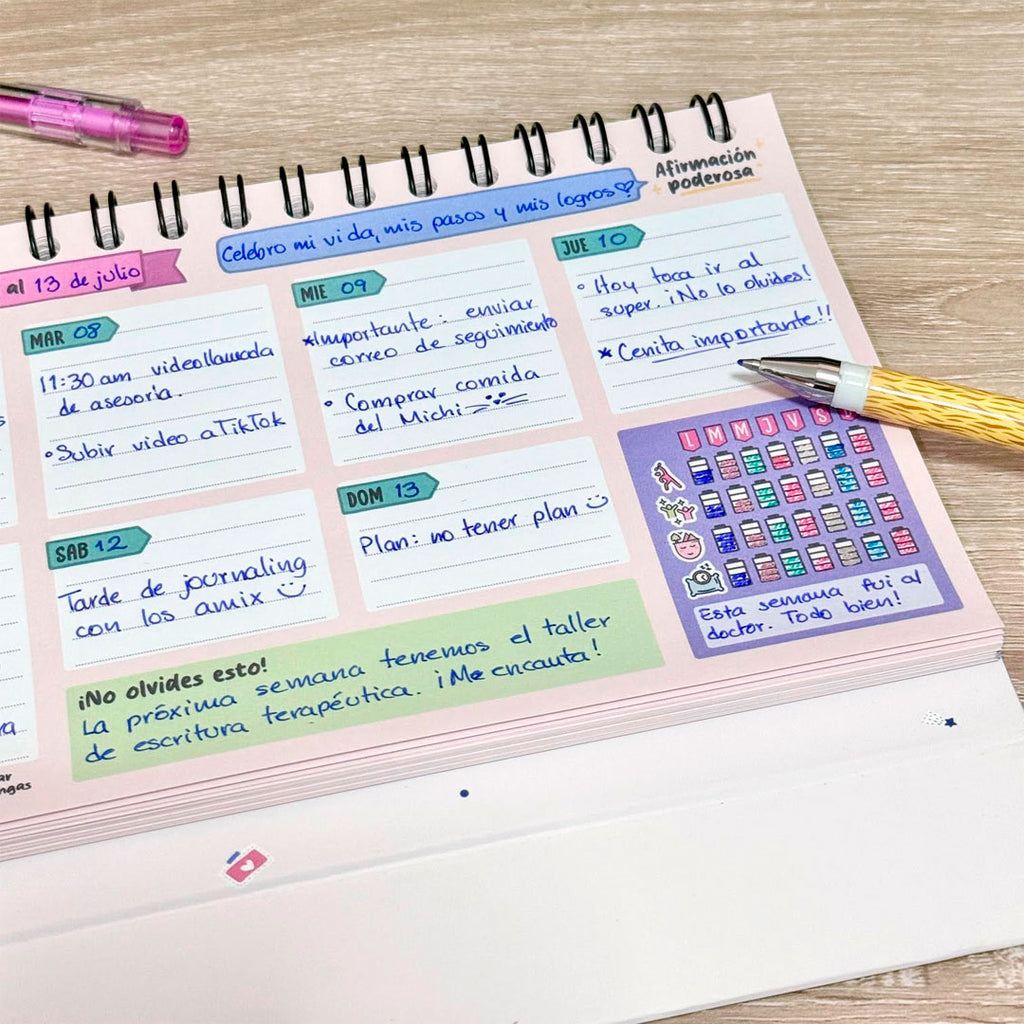 Afirmación
poderosa
Celebro mi vida, mis pasos y mis logros♡
al 13 de julio
MAR 08
11:30 am videollamada
de asesoría.
• Subir video a TikTok
MIE 09
★Importante: enviar
correo de seguimiento
• Comprar comida
del Michi
JUE 10
• Hoy toca ir al
super. ¡No lo olvides!
★ Cenita importante!!
SAB 12
Tarde de journaling
con los amix ☺
DOM 13
Plan: no tener plan ☺
L M M J V S D
Esta semana fui al
doctor. Todo bien!
¡No olvides esto!
La próxima semana tenemos el taller
de escritura terapéutica. ¡Me encanta!